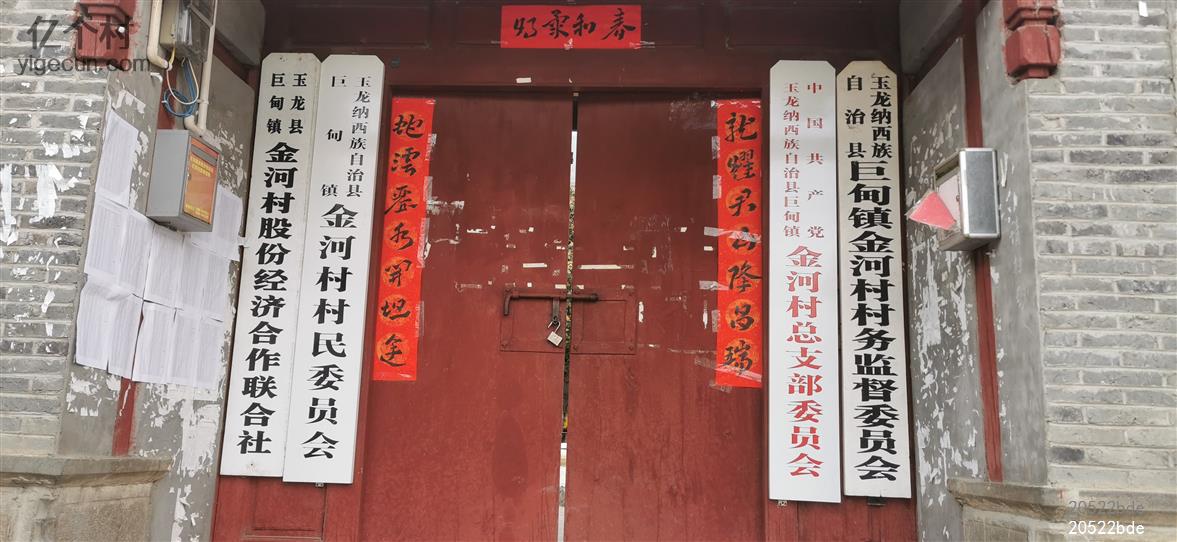 亿个村
yigecun.com
春和景明
玉龙县
巨甸镇
金河村股份经济合作联合社
玉龙纳西族自治县
巨甸镇
金河村村民委员会
中国共产党
玉龙纳西族自治县巨甸镇
金河村总支部委员会
玉龙纳西族
自治县
巨甸镇金河村村务监督委员会
龍耀 山隆昌瑞
地 水開坦途
20522bde
20522bde